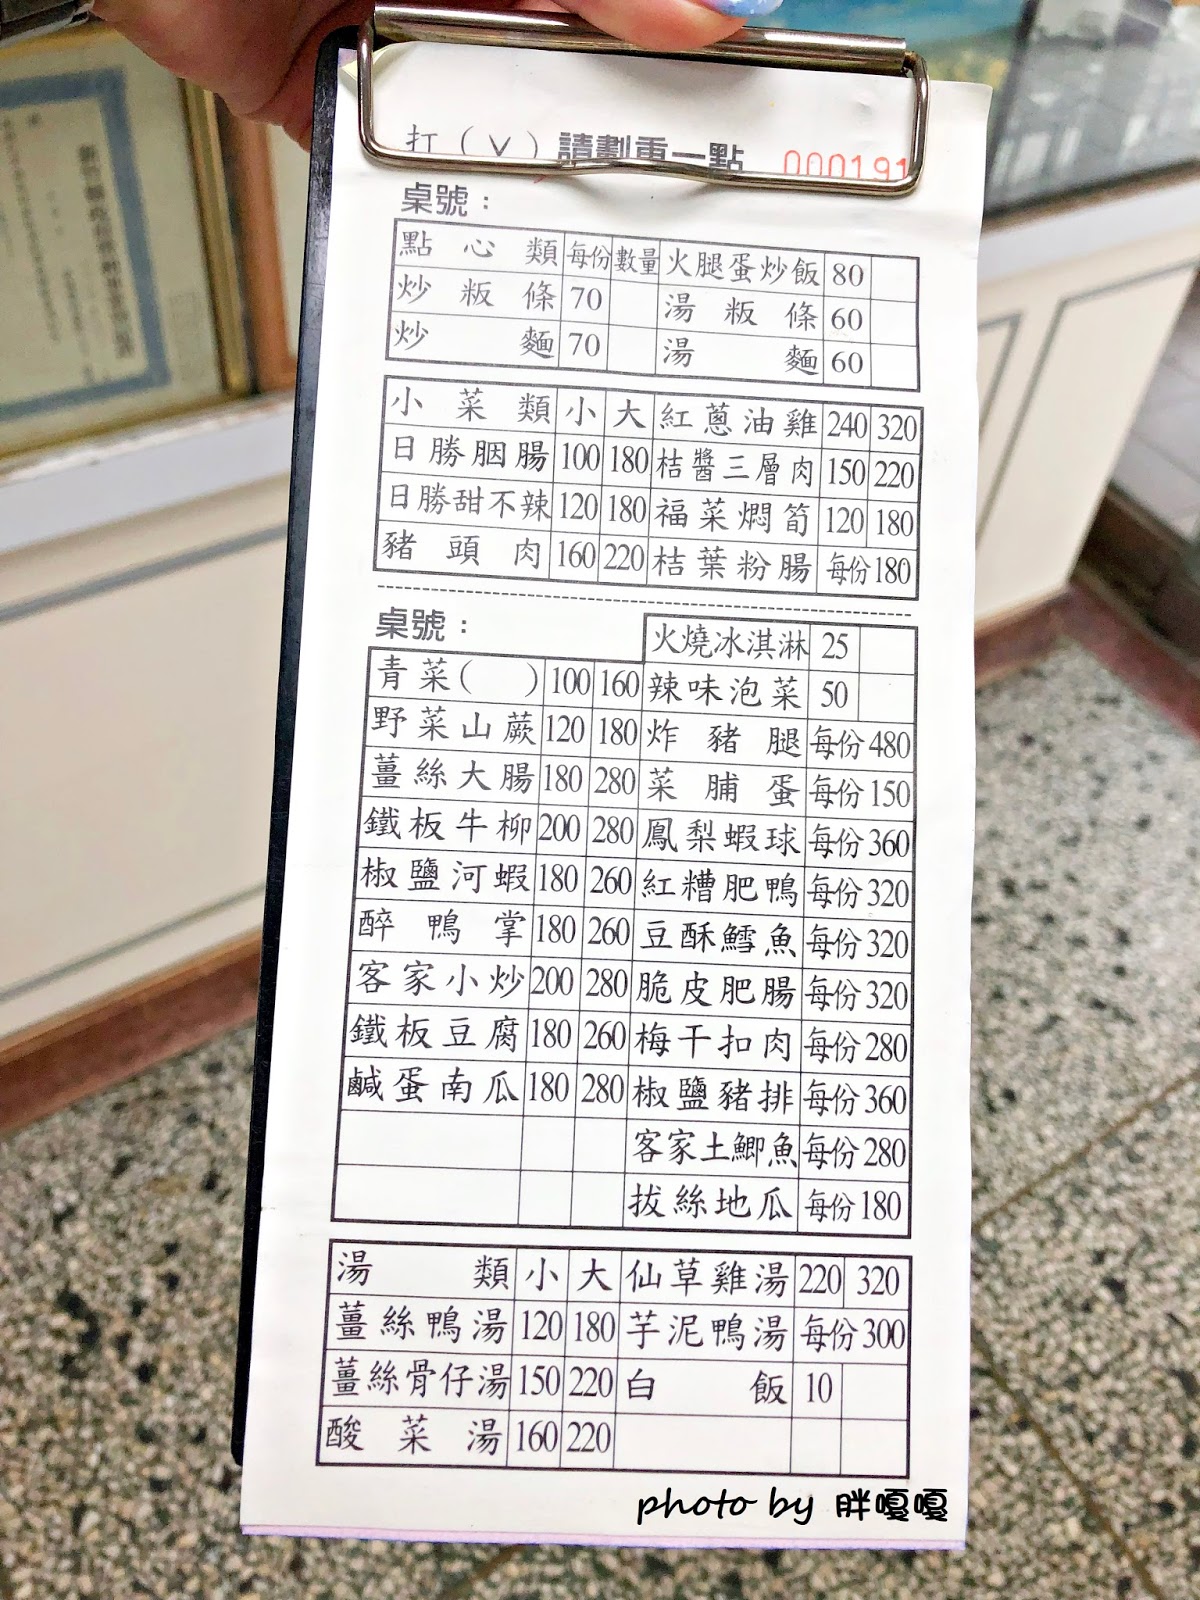 打（∨）請劃重一點 000191
桌號：
點心類 每份 數量 火腿蛋炒飯 80
炒粄條 70 湯粄條 60
炒麵 70 湯麵 60
小菜類 小 大 紅蔥油雞 240 320
日勝胭腸 100 180 桔醬三層肉 150 220
日勝甜不辣 120 180 福菜燜筍 120 180
豬頭肉 160 220 桔葉粉腸 每份180
桌號： 火燒冰淇淋 25
青菜( ) 100 160 辣味泡菜 50
野菜山蕨 120 180 炸豬腿 每份480
薑絲大腸 180 280 菜脯蛋 每份150
鐵板牛柳 200 280 鳳梨蝦球 每份360
椒鹽河蝦 180 260 紅糟肥鴨 每份320
醉鴨掌 180 260 豆酥鱈魚 每份320
客家小炒 200 280 脆皮肥腸 每份320
鐵板豆腐 180 260 梅干扣肉 每份280
鹹蛋南瓜 180 280 椒鹽豬排 每份360
客家土鯽魚 每份280
拔絲地瓜 每份180
湯類 小 大 仙草雞湯 220 320
薑絲鴨湯 120 180 芋泥鴨湯 每份300
薑絲骨仔湯 150 220 白飯 10
酸菜湯 160 220
photo by 胖嘎嘎